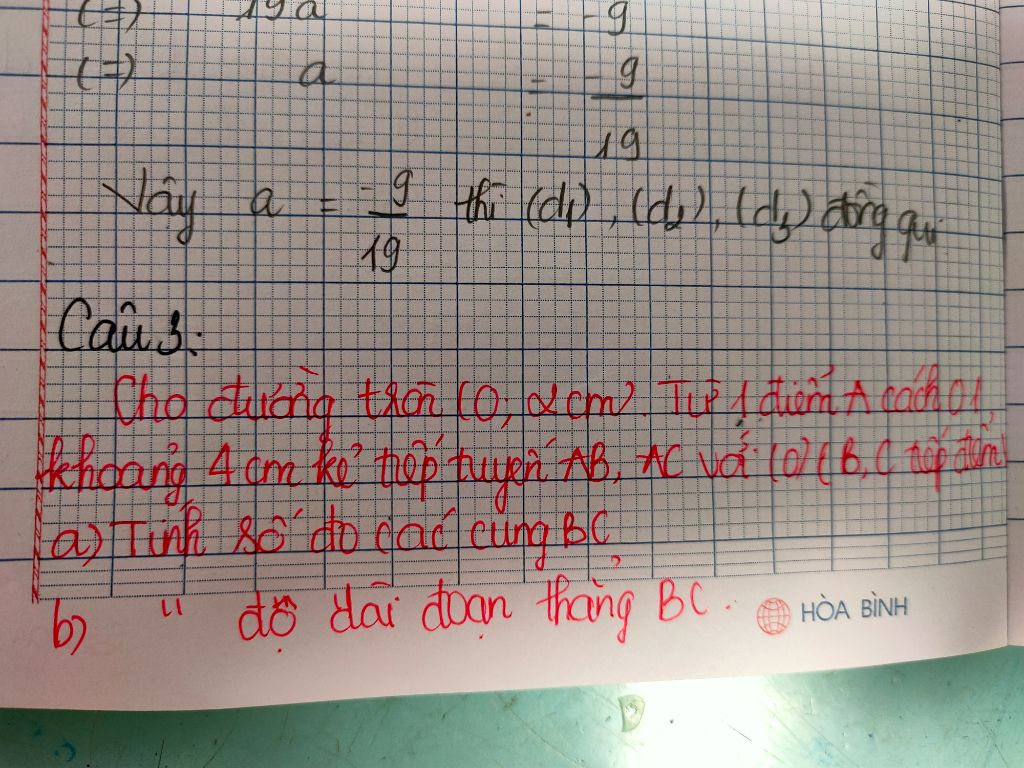 (=) 19a = -9
(=) a = -9
19
Vậy a = -9 thì (d1), (d2), (d3) đồng qui
19
Câu 3:
Cho đường tròn (O; 2cm). Từ 1 điểm A cách O 1
khoảng 4 cm kẻ tiếp tuyến AB, AC với (O) (B, C tiếp điểm)
a) Tính số đo các cung BC
b) " độ dài đoạn thẳng BC.
HÒA BÌNH